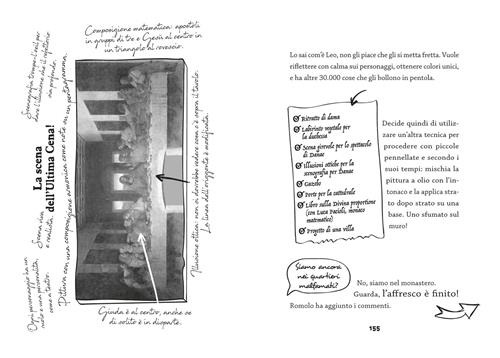 Composizione matematica: apostoli
in gruppi di tre e Gesù al centro in
un triangolo al rovescio.
Scenografia trompe-l'œil per
dare l'illusione che il refettorio
sia profondo.
La scena
dell'Ultima Cena!
Scena viva
e realista.
Ogni personaggio ha un
ruolo e una personalità,
come a teatro.
Pittura con una composizione armonica come note su un pentagramma.
Illusione ottica: non si dovrebbe vedere cosa c'è sopra il tavolo.
La linea dell'orizzonte è modificata.
Giuda è al centro, anche se
di solito è in disparte.
Lo sai com'è Leo, non gli piace che gli si metta fretta. Vuole
riflettere con calma sui personaggi, ottenere colori unici,
e ha altre 30.000 cose che gli bollono in pentola.
Ritratto di dama
Labirinto vegetale per
la duchessa
Scena girevole per lo spettacolo
di Danae
Illusioni ottiche per la
scenografia per Danae
Gazebo
Porte per la cattedrale
Libro sulla Divina proportione
(con Luca Pacioli, monaco
matematico)
Progetto di una villa
Decide quindi di utiliz-
zare un'altra tecnica per
procedere con piccole
pennellate e secondo i
suoi tempi: mischia la
pittura a olio con l'in-
tonaco e la applica stra-
to dopo strato su una
base. Uno sfumato sul
muro!
Siamo ancora
nei quartieri
malfamati?
No, siamo nel monastero.
Guarda, l'affresco è finito!
Romolo ha aggiunto i commenti.
155